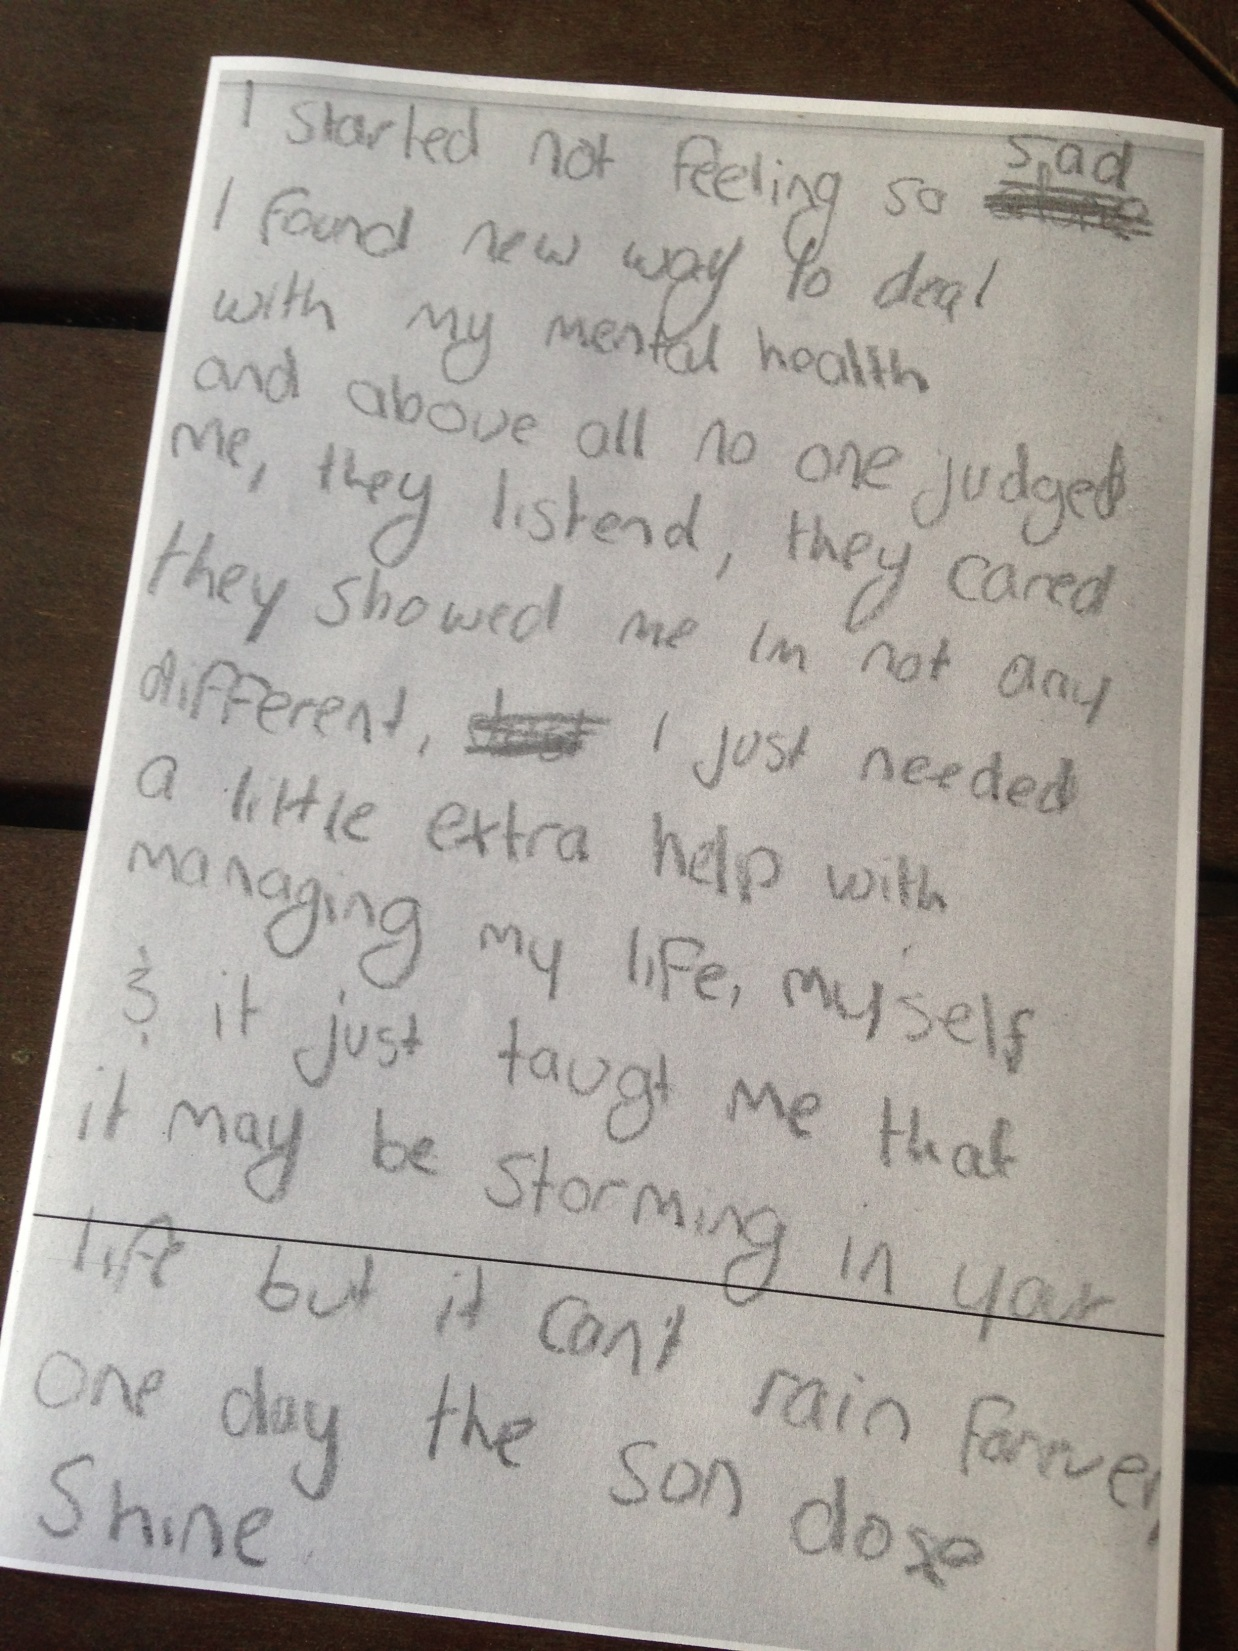 I started not feeling so sad
I found new way to deal
with my mental health
and above all no one judged
me, they listend, they cared
they showed me im not any
different, I just needed
a little extra help with
managing my life, myself
& it just taugt me that
it may be storming in your
life but it can't rain farever,
one day the son dose
Shine